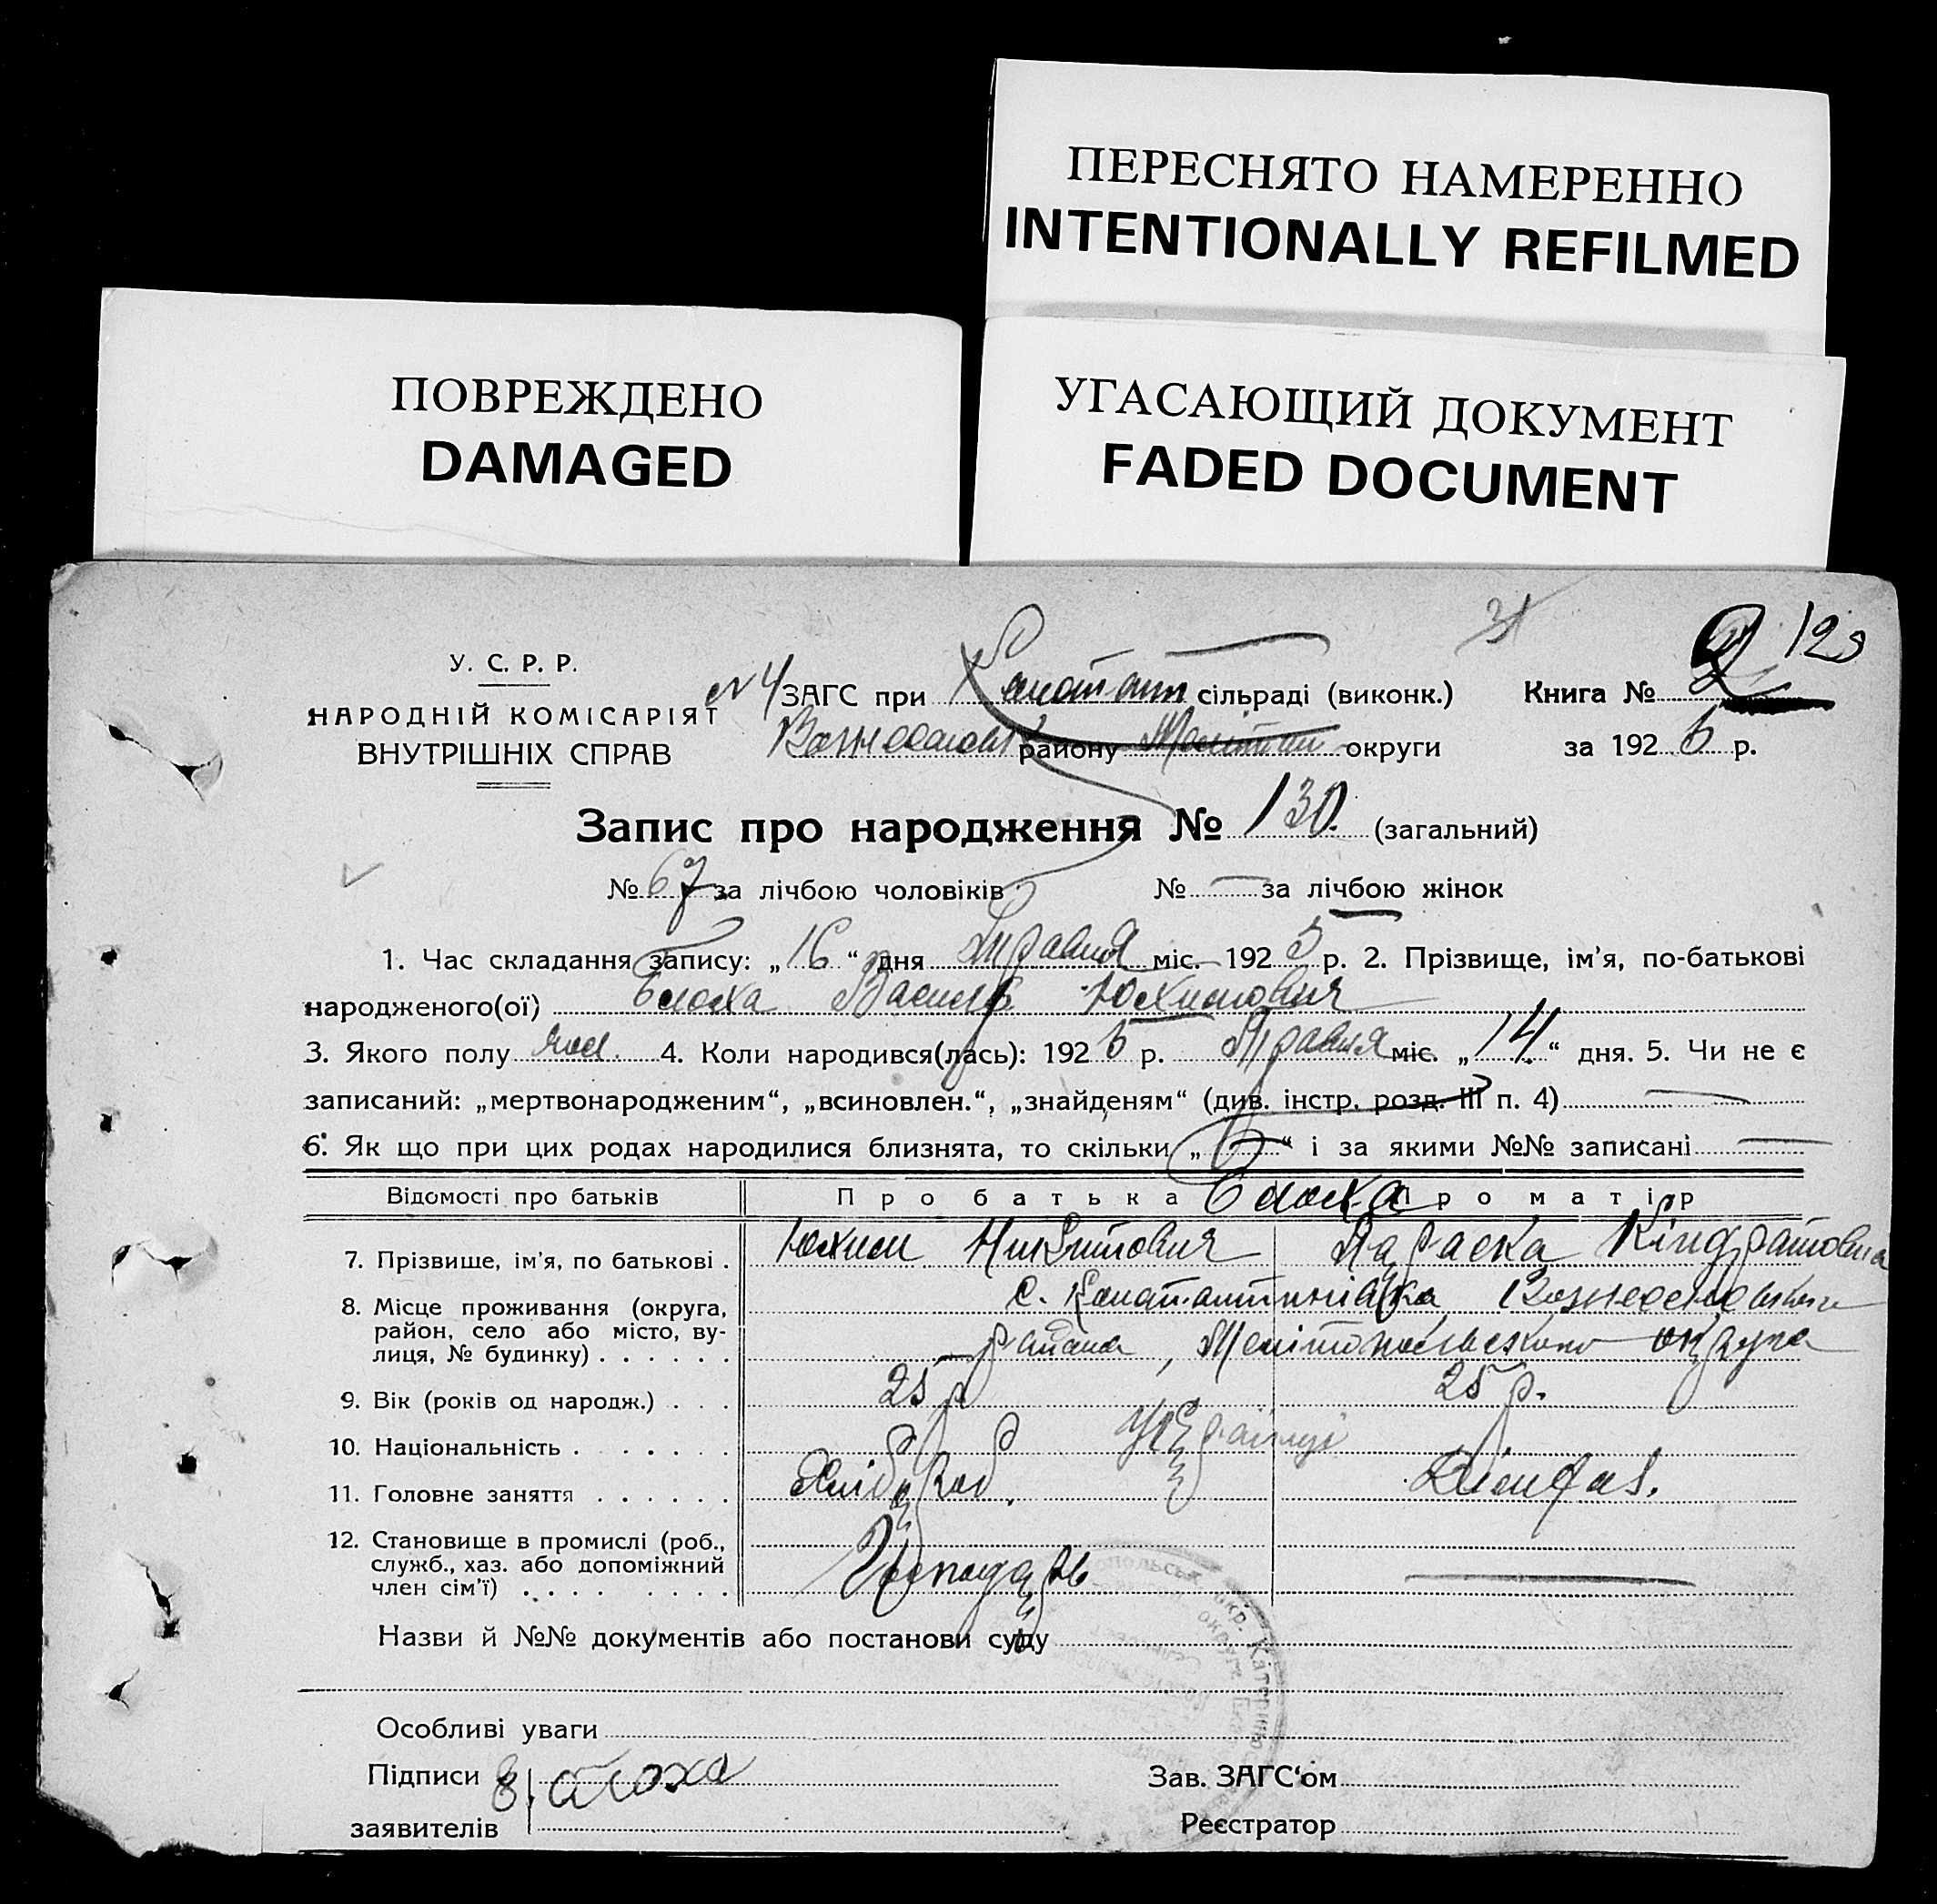 ПЕРЕСНЯТО НАМЕРЕННО
INTENTIONALLY REFILMED
ПОВРЕЖДЕНО
DAMAGED
УГАСАЮЩИЙ ДОКУМЕНТ
FADED DOCUMENT
31
2 123
У. С. Р. Р.
НАРОДНІЙ КОМІСАРІЯТ
ВНУТРІШНІХ СПРАВ
№4 ЗАГС при Констант сільраді (виконк.) Книга №
району Меліт округи за 192 р.
Запис про народження № 130. (загальний)
№ 67 за лічбою чоловіків № — за лічбою жінок
1. Час складання запису: „16“ дня Травня міс. 192 р. 2. Прізвище, ім'я, по-батькові
народженого(ої) Блоха Василь Юхимович
3. Якого полу чол. 4. Коли народився(лась): 192 р. Травня міс. „14“ дня. 5. Чи не є
записаний: „мертвонародженим“, „всиновлен.“, „знайденям“ (див. інстр. розд. III п. 4) —
6. Як що при цих родах народилися близнята, то скільки „—“ і за якими №№ записані —
Відомості про батьків Про батька Блоха Про матір
7. Прізвище, ім'я, по батькові . Юхим Микитович Параска Кіндратовна
8. Місце проживання (округа, с. Константинівка, Вознесенського
район, село або місто, ву-
лиця, № будинку) . . . . . . района, Мелітопольського округа
9. Вік (років од народж.) . . . 25 р 25 р.
10. Національність . . . . . . Українці
11. Головне заняття . . . . . . Хлібороб.
12. Становище в промислі (роб.,
служб., хаз. або допоміжний
член сім'ї) . . . . . . . . Господарь —
Назви й №№ документів або постанови суду
Особливі уваги
Підписи Блоха Зав. ЗАГС'ом
заявителів Реєстратор